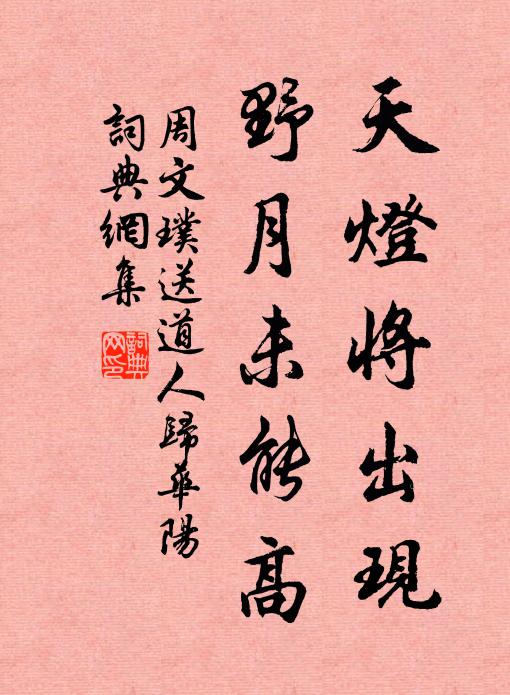 天燈將出現
野月未能高
周文璞送道人歸華陽
詞典網集
詞典
网印